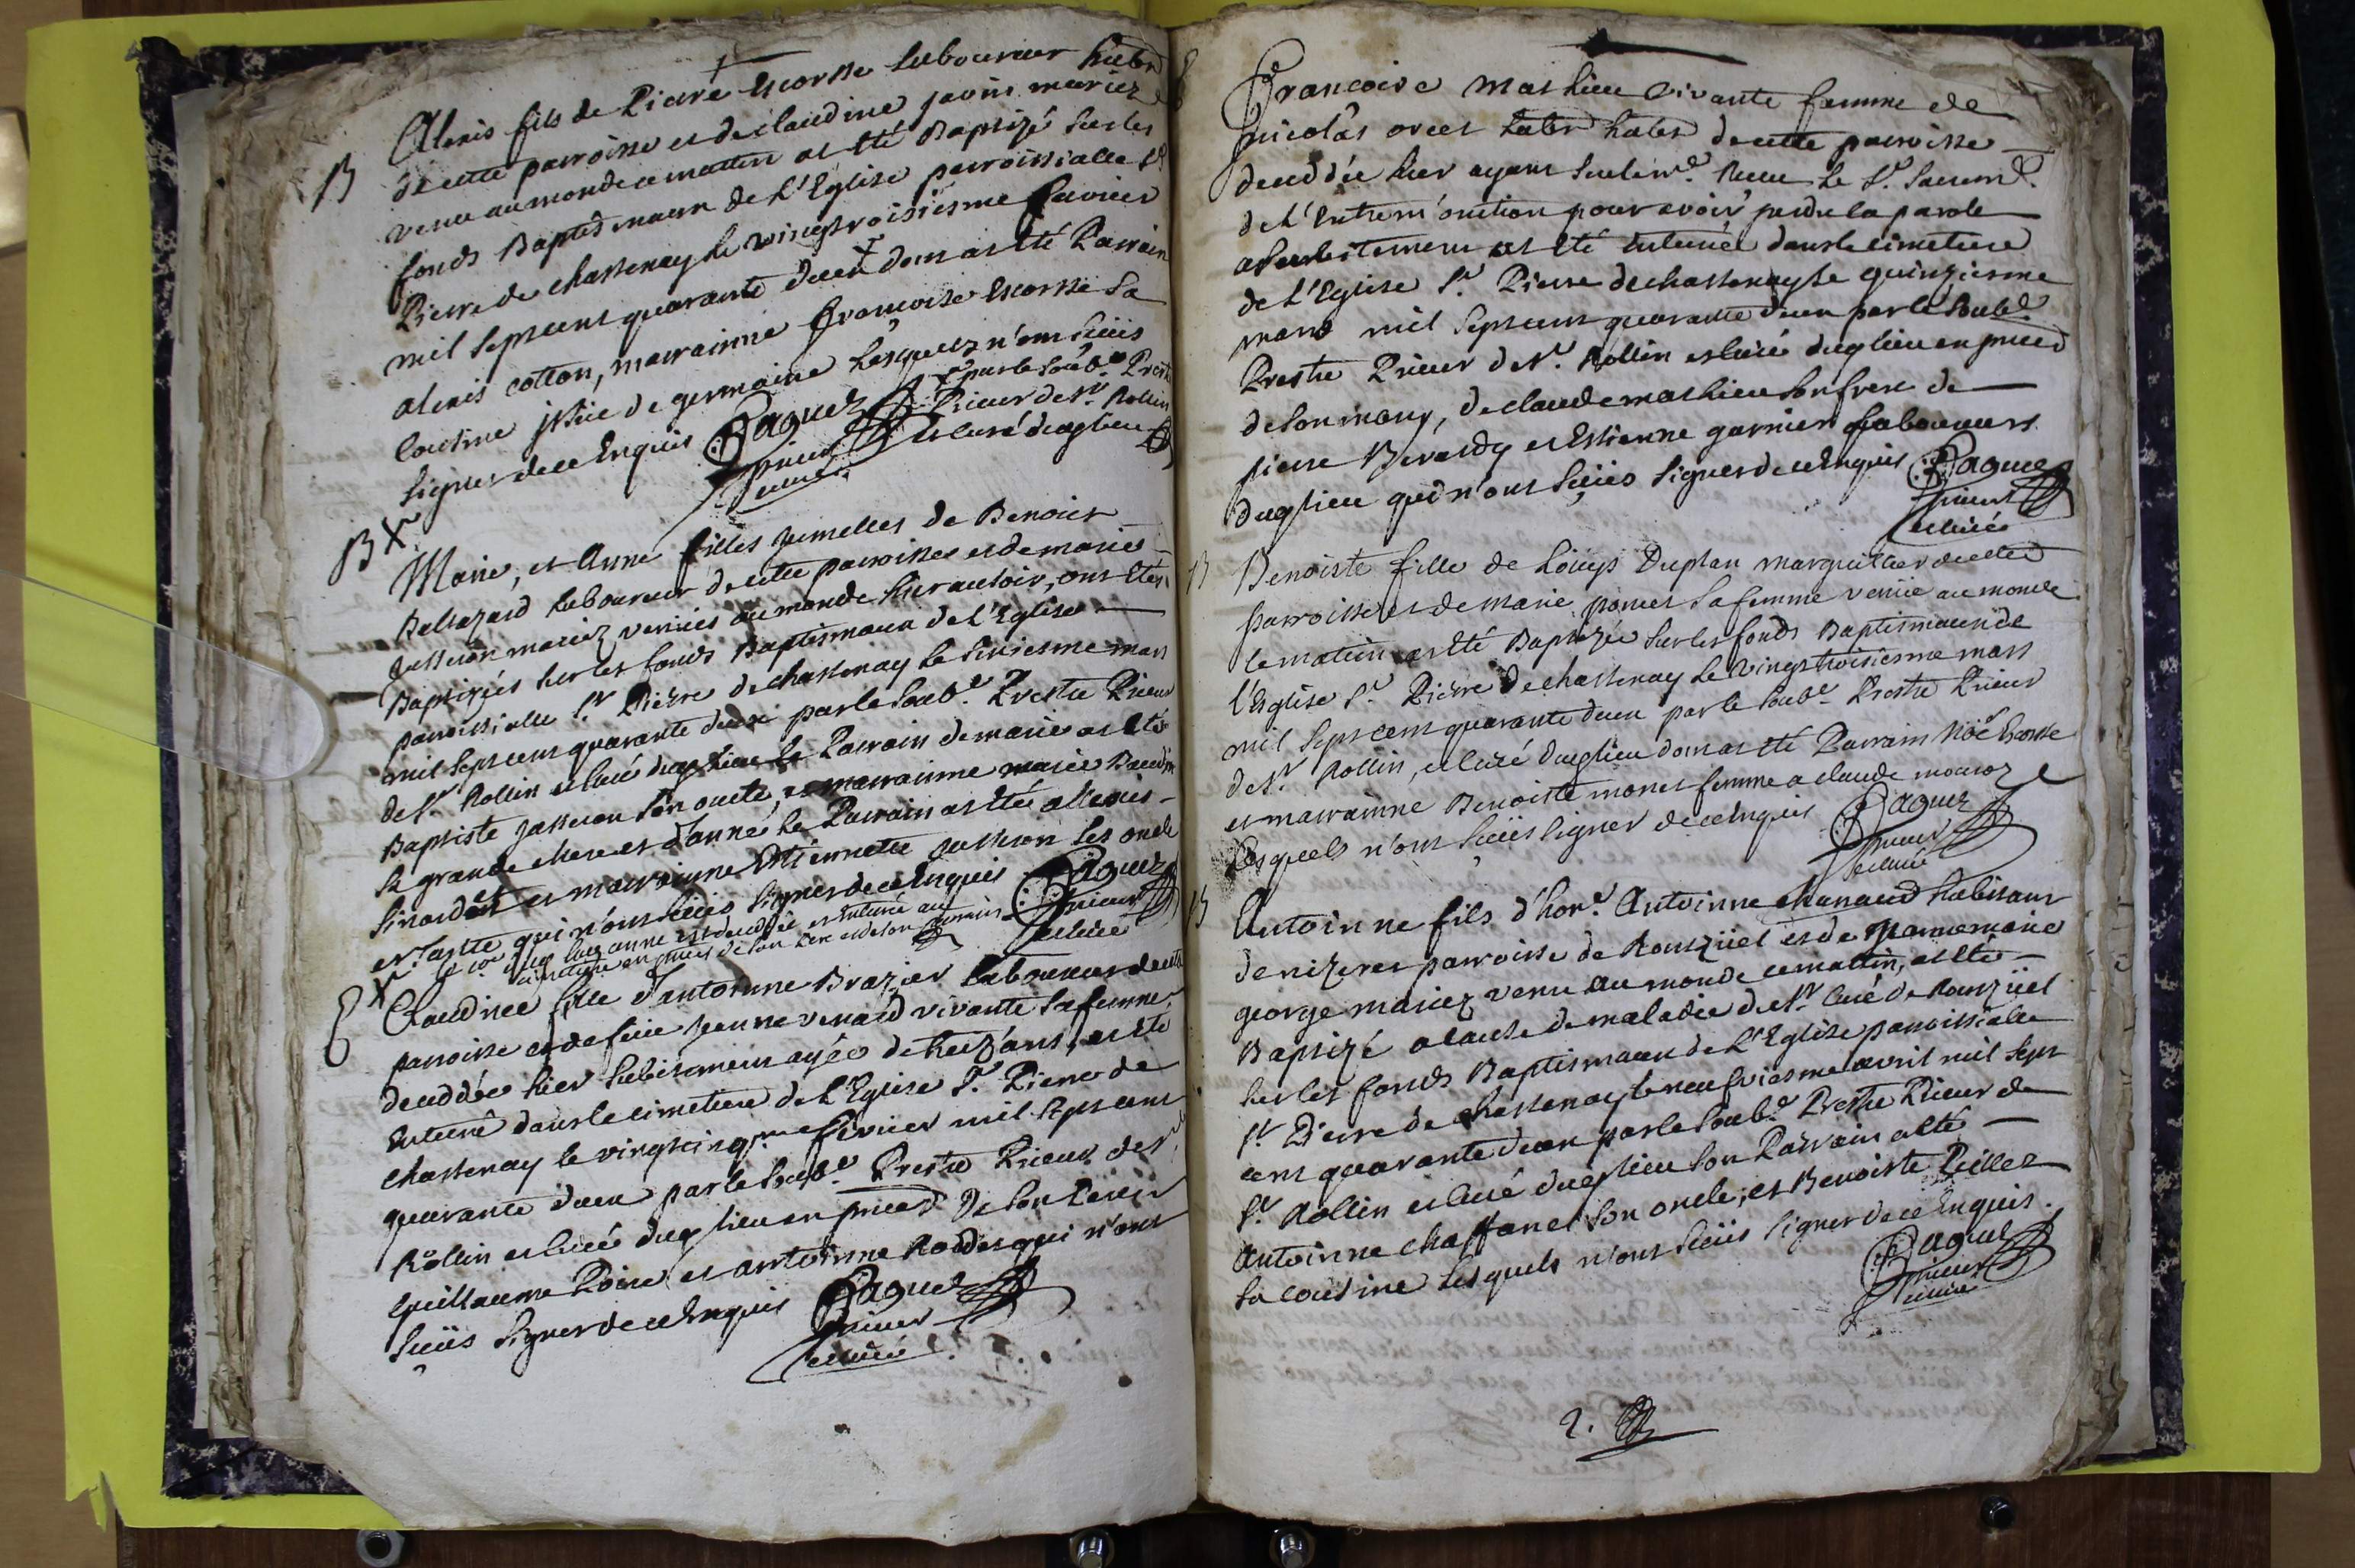 B
Alexis fils de Pierre Escosse laboureur habtn
de cette parroisse et de claudine javin mariez
venu au monde ce matin at été Baptizé sur les
fonds Baptismaux de L'Eglise parroissialle St
Pierre de chassenay le vingtroisiesme Janvier
mil septcent quarante deux X dont at été Parrain
alexis cotton, marrainne francoise Escosse sa
cousine jssüe de germaine lesquelz n'ont sçüis
signer de ce Enquis
X par le soub.é Prestre
Prieur de St. Rollin
et curé dugt lieu
Paquez
prieur
et curé
B X
Marie, et Anne filles jumelles de Benoist
Baltazard laboureur de cette parroisse et de marie
Jasseron mariez venües au monde hier au soir, ont étés
Baptizées sur les fonds Baptismaux de L'Eglise
parroissialle St Pierre de chassenay le sixiesme mars
mil septcent quarante deux par le soub.é Prestre Prieur
de St Rollin et curé dugt lieu le Parrain de marie at été
Baptiste Jasseron son oncle, et marrainne marie
sa grande mere et d'anne le Parrain at été allexis
et marrainne Estiennette Jasseron les oncle
et Tante qui n'ont sçüis signer de ce Enquis
Paquez
prieur
et curé
anne est deceddée et enterré au
cimetiere en presce de son Pere et de son
X
Claudinee fille d'antoinne Brazier laboureur de cette
parroisse et de feüe Jeanne venard vivante sa femme,
deceddée hier subitement agée de huiz ans, at été
Enterré dans le cimetiere de L'Eglise St. Pierre de
chassenay le vingtcinq.me fevrier mil septcent
quarante deux par le soub.é Prestre Prieur de St
Rollin et curé dugt lieu en presce De son Pere,
Guillaume Poire et antoinne qui n'ont
sçüis signer de ce Enquis
Paquez
prieur
et curé
Francoise Mathieu vivante femme de
nicolas habtn de cette parroisse
deceddée hier ayant seulem.t receu le St. Sacrem.t
de L'Extrem'onction pour avoir perdu la parole
subitement at été Enterrée dans le cimetiere
de L'Eglise St. Pierre de chassenay le quinziesme
mars mil septcent quarante deux par le soub.é
Prestre Prieur de St. Rollin et curé dugt lieu en presce
de son mary, de claude mathieu son frere de
pierre Berardy et Estienne garnier laboureurs
dugt lieu qui n'ont sçüis signer de ce Enquis
Paquez
prieur
et curé
B
Benoiste fille de Loüys Duplan marguillier de cette
parroisse et de marie sa femme venüe au monde
ce matin at été Baptizée sur les fonds Baptismaux de
l'Eglise St. Pierre de chassenay le vingtroisiesme mars
mil septcent quarante deux par le soub.é Prestre Prieur
de St Rollin, et curé dugt lieu dont at été Parrain Noë Escosse
et marrainne Benoiste femme a claude
Lesquels n'ont sçüis signer de ce Enquis
Paquez
prieur
et curé
B
Antoinne fils d'hon.e Antoinne chanaud habitant
de nizeres parroisse de Ronzüel et de Jeannemarie
george mariez venu au monde ce matin, at été
Baptizé a cause de maladie de Mr curé de Ronzüel
sur les fonds Baptismaux de L'Eglise parroissialle
St Pierre de chassenay le neufviesme avril mil sept
cent quarante deux par le soub.é Prestre Prieur de
St. Rollin et curé dugt lieu son Parrain at été
Antoinne chaffanel son oncle, et Benoiste Pillez
sa cousine lesquels n'ont sçüis signer de ce Enquis.
Paquez
prieur
et curé
2.